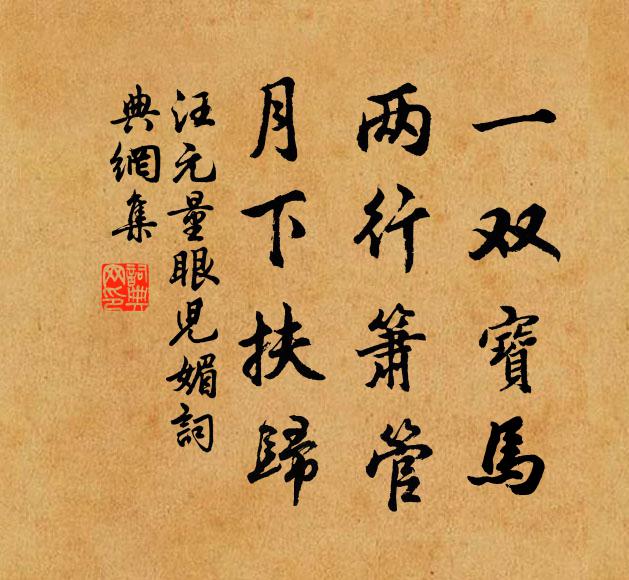 一双寶馬
两行箫管
月下扶歸
汪元量眼児媚詞
典網集
詞典
网印